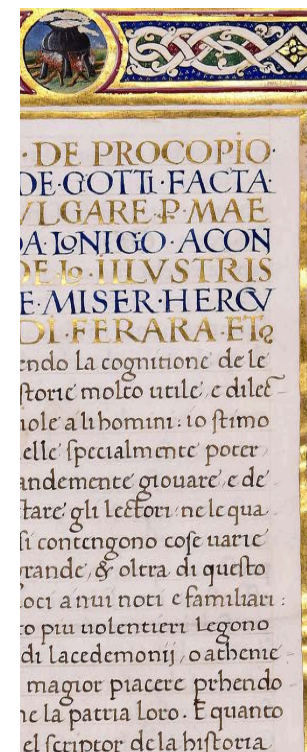 · DE PROCOPIO·
DE·GOTTI·FACTA·
VLGARE·P·MAE
DA·LONIGO·ACON
DE·LO·ILLVSTRIS
E·MISER·HERCV
DI·FERARA·ETꝫ
endo la cognitione de le
ſtorie molto utile, e dilec̄
uole a li homini: io ſtimo
elle ſpecialmente poter,
andemente giouare, e de
tare gli lectori: ne le qua
ſi contengono coſe uarie
grande, & oltra di queſto
loci a nui noti e familiari:
to piu uolentieri legono
di lacedemonij, o athenie
magior piacere prhendo
ne la patria loro. E quanto
el ſcriptor de la hiſtoria